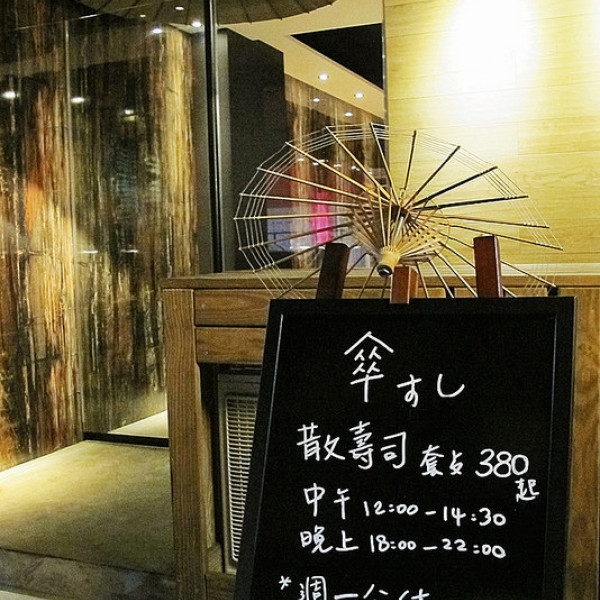 傘すし
散壽司 套餐 380起
中午 12:00-14:30
晚上 18:00-22:00
*週一公休